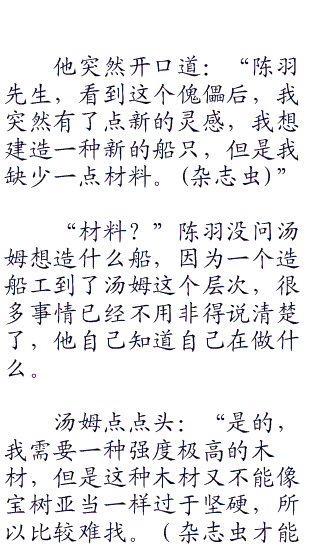 他突然开口道：“陈羽
先生，看到这个傀儡后，我
突然有了点新的灵感，我想
建造一种新的船只，但是我
缺少一点材料。(杂志虫)”
“材料？”陈羽没问汤
姆想造什么船，因为一个造
船工到了汤姆这个层次，很
多事情已经不用非得说清楚
了，他自己知道自己在做什
么。
汤姆点点头：“是的，
我需要一种强度极高的木
材，但是这种木材又不能像
宝树亚当一样过于坚硬，所
以比较难找。（杂志虫才能